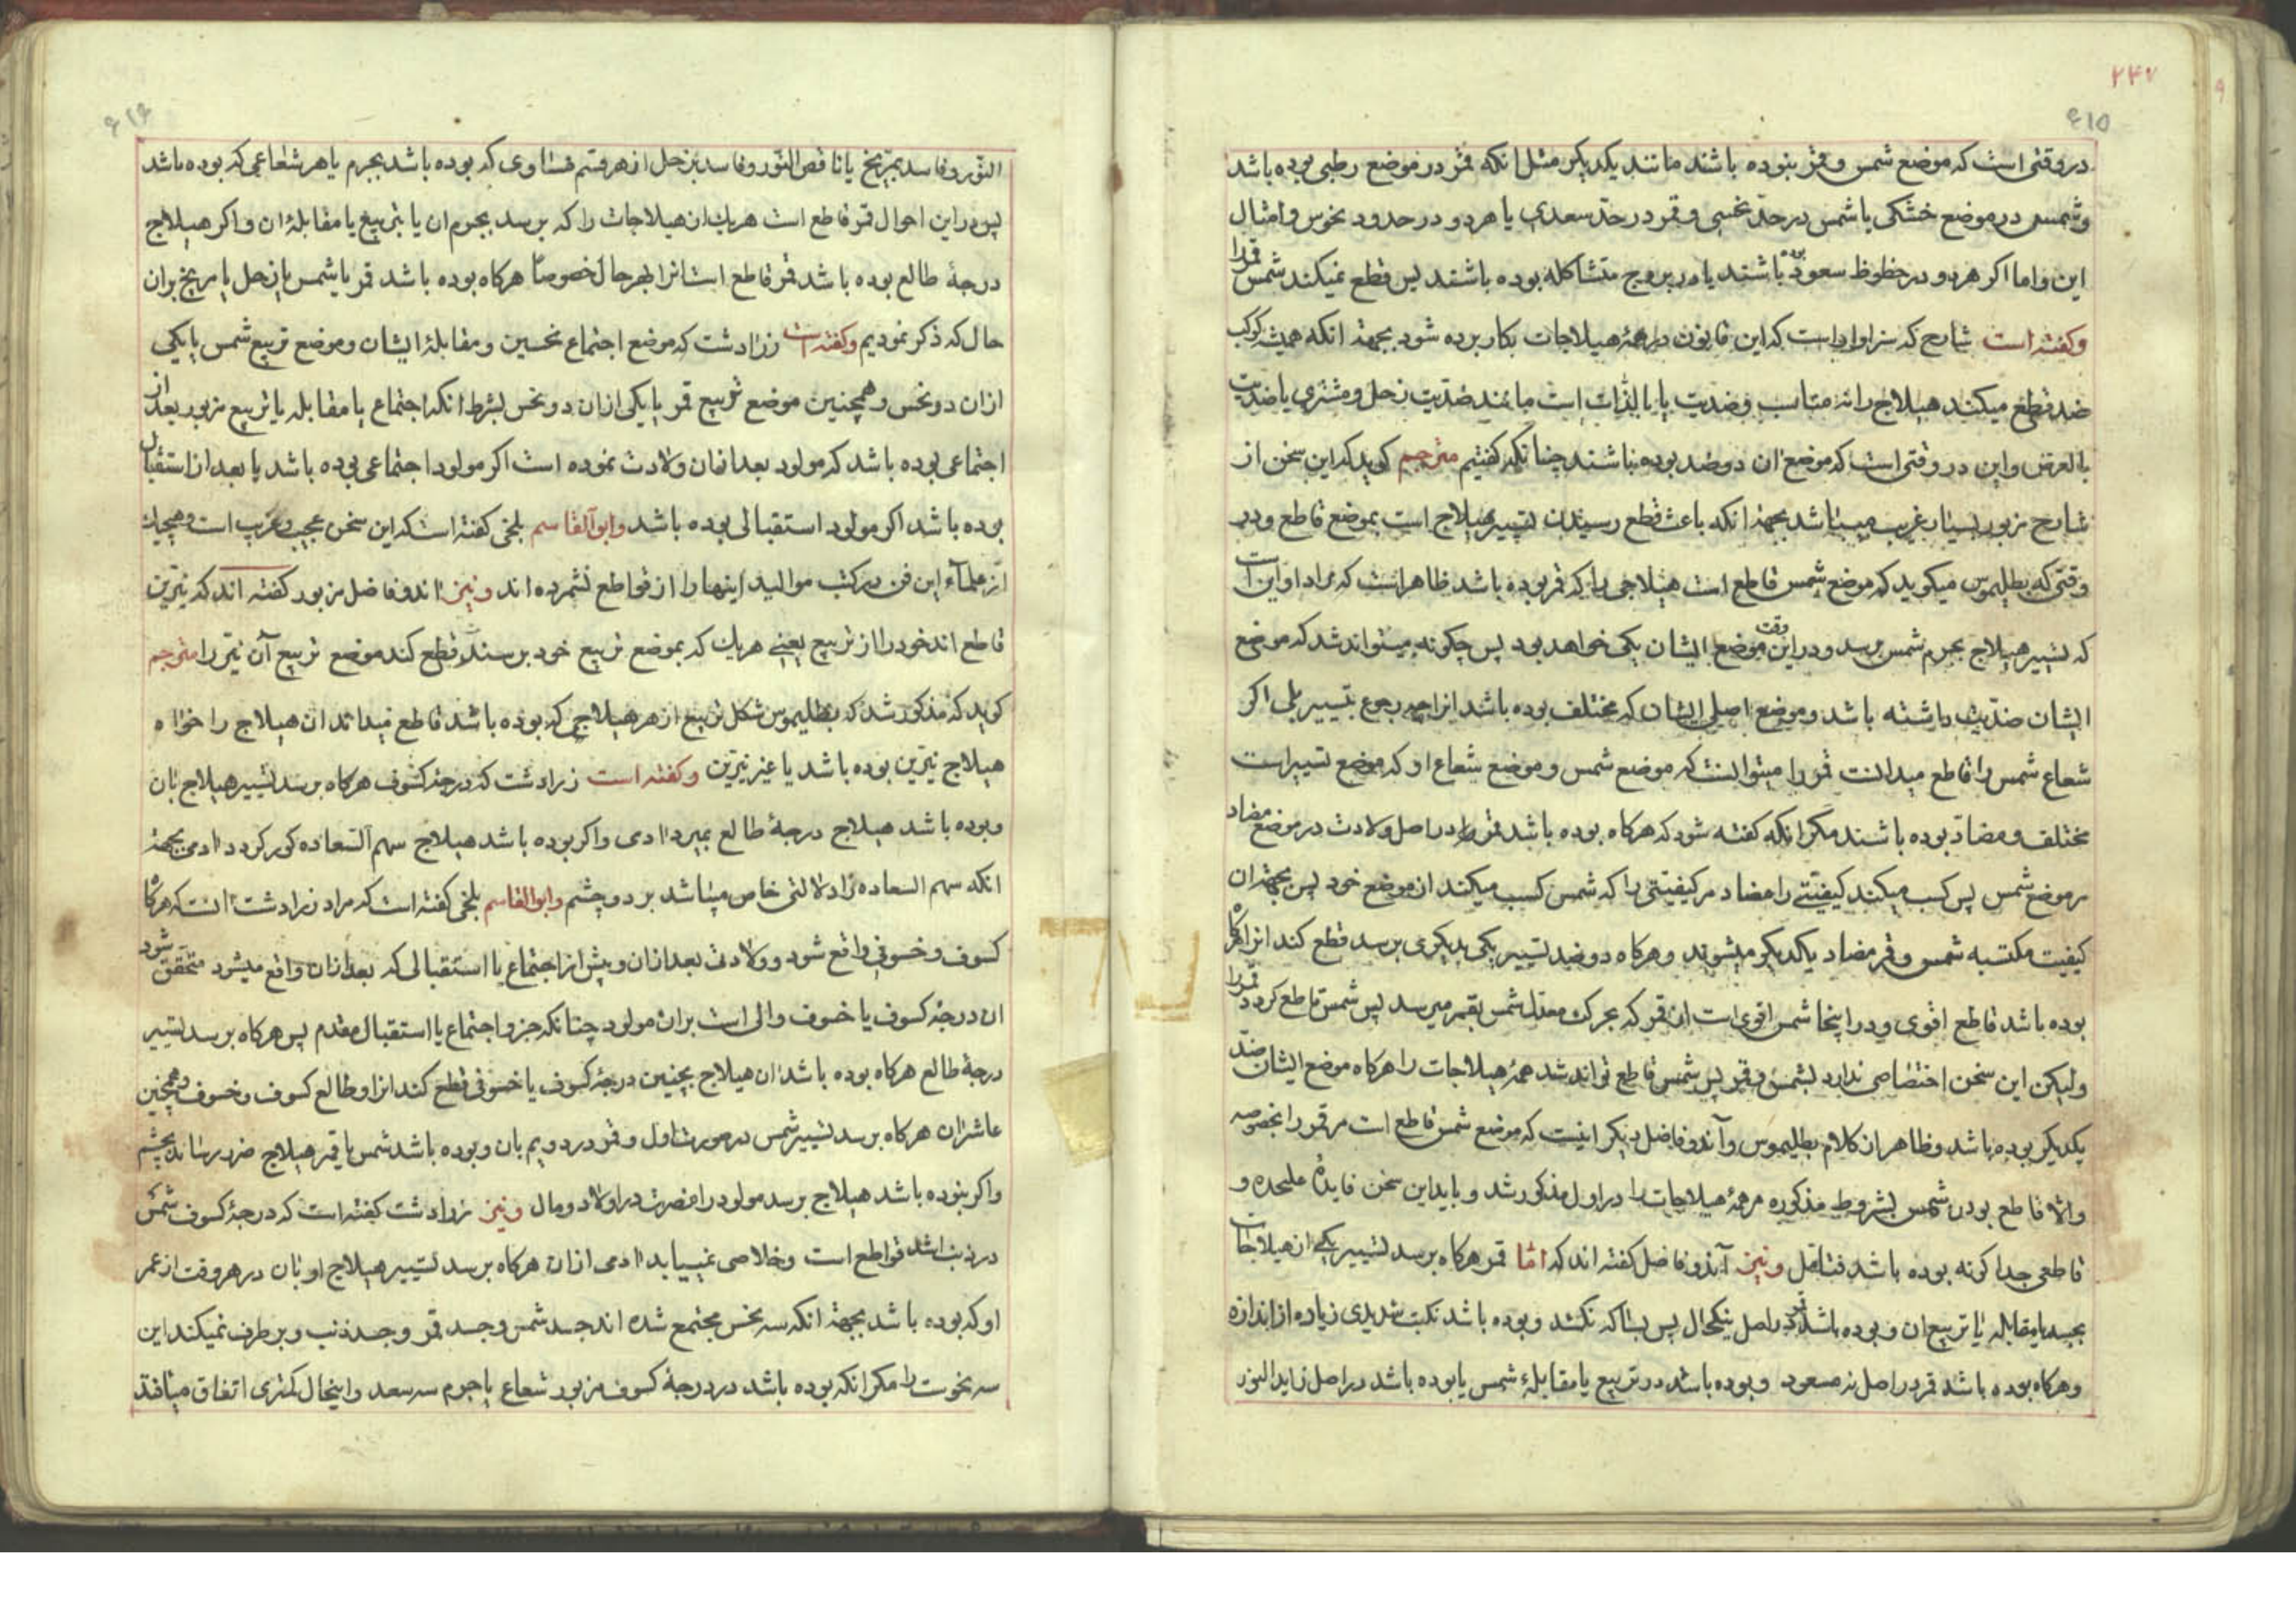 ۲۴۷
۶۱۵
در وقتی است که موضع شمس و قمر بنوده باشند مانند یکدیکر مثل انکه قمر در موضع رطبی بوده باشد
و شمس در موضع خشکی یا شمس در حد نحسی و قمر در حد سعدی یا هر دو در حدود نحوس و امثال
این و اما اکر هر دو در حظوظ سعود بوده باشند یا در بروج متشاکله بوده باشند پس قطع نمیکند شمس قمر را
وکفته است شارح که سزاوار است که این قانون در همهٔ هیلاجات بکار برده شود بجهة انکه همیشه کوکب
ضد قطع میکند هیلاج را نه مناسب و ضدیت یا بالذات است مانند ضدیت زحل و مشتری یا ضدیت
بالعرض و این در وقتی است که موضع ان دو ضد بوده باشند چنانکه کفتیم مترجم کوید که این سخن از
شارح مزبور بسیار غریب میباشد بجهة انکه باعث قطع رسیدن تسییر هیلاج است بموضع قاطع و در
وقتی که بطلیموس میکوید که موضع شمس قاطع است هیلاجی را که قمر بوده باشد ظاهر است که مراد او این است
که تسییر هیلاج بجرم شمس برسد و در این وقت موضع ایشان یکی خواهد بود پس چکونه میتواند شد که موضع
ایشان ضدیت داشته باشد و موضع اصلی ایشان که مختلف بوده باشد انرا چه رجوع بتسییر بلی اکر
شعاع شمس را قاطع میدانست قمر را میتوانست که موضع شمس و موضع شعاع او که موضع تسییر است
مختلف و مضاد بوده باشند مکر انکه کفته شود که هرکاه بوده باشد قمر در اصل ولادت در موضع مضاد
مر موضع شمس پس کسب میکند کیفیتی را مضاد مر کیفیتی را که شمس کسب میکند از موضع خود پس بجهة ان
کیفیت مکتسبه شمس و قمر مضاد یکدیکر میشوند و هرکاه دو ضد تسییر یکی بدیکری برسد قطع کند انرا هرکاه
بوده باشد قاطع اقوی و در اینجا شمس اقوی است از قمر که بحرکت معدل شمس بقمر میرسد پس شمس قاطع کردد قمر را
ولیکن این سخن اختصاصی ندارد بشمس و قمر پس شمس قاطع تواند شد همهٔ هیلاجات را هرکاه موضع ایشان ضد
یکدیکر بوده باشد و ظاهر ان کلام بطلیموس و آندو فاضل دیکر اینست که موضع شمس قاطع است مر قمر را بخصوصه
والا قاطع بودن شمس بشروط مذکوره مر همهٔ هیلاجات را در اول مذکور شد و باید این سخن فایدهٔ علیحده و
قاطعی جداکونه بوده باشد فتامل ونیز آندو فاضل کفته اند که اما قمر هرکاه برسد تسییر یکی از هیلاجات
بجسد یا مقابله یا تربیع ان و بوده باشد قمر در اصل نیکحال پس بسا که نکشد و بوده باشد نکبت شدیدی زیاده از اندازه
و هرکاه بوده باشد قمر در اصل نه مسعود و بوده باشد در تربیع یا مقابلهٔ شمس یا بوده باشد در اصل زاید النور
۶۱۶
النور و فاسد بمریخ یا ناقص النور و فاسد بزحل از هر قسم فساوی که بوده باشد بجرم یا هر شعاعی که بوده باشد
پس در این احوال قمر قاطع است هر یک از هیلاجات را که برسد بجرم ان یا بتربیع یا مقابلهٔ ان و اکر هیلاج
درجهٔ طالع بوده باشد قمر قاطع است انرا بهر حال خصوصا هرکاه بوده باشد قمر با شمس یا زحل یا مریخ بران
حال که ذکر نمودیم وکفته است زرادشت که موضع اجتماع نحسین و مقابلهٔ ایشان و موضع تربیع شمس با یکی
ازان دو نحس و همچنین موضع تربیع قمر با یکی ازان دو نحس بشرط انکه اجتماع یا مقابله یا تربیع مزبور بعد از
اجتماعی بوده باشد که مولود بعد ازان ولادت نموده است اکر مولود اجتماعی بوده باشد یا بعد از استقبال
بوده باشد اکر مولود استقبالی بوده باشد وابوالقاسم بلخی کفته است که این سخن عجیب و غریب است و هیچیک
از علماء این فن در کتب موالید اینها را از قواطع نشمرده اند ونیز اندو فاضل مزبور کفته اند که نیرین
قاطع اند خود را از تربیع یعنی هر یک که بموضع تربیع خود برسند قطع کند موضع تربیع آن نیر را مترجم
کوید که مذکور شد که بطلیموس شکل تربیع از هر هیلاجی که بوده باشد قاطع میداند ان هیلاج را خواه
هیلاج نیرین بوده باشد یا غیر نیرین وکفته است زرادشت که درجهٔ کسوف هرکاه برسد تسییر هیلاج بان
و بوده باشد هیلاج درجهٔ طالع بمیرد ادمی و اکر بوده باشد هیلاج سهم السعاده کور کردد ادمی بجهة
انکه سهم السعاده را دلالتی خاص میباشد بر دو چشم وابوالقاسم بلخی کفته است که مراد زرادشت انست که هرکاه
کسوف و خسوفی واقع شود و ولادت بعد ازان و پیش از اجتماع یا استقبالی که بعد ازان واقع میشود متحقق شود
ان درجهٔ کسوف یا خسوف والی است بران مولود چنانکه جزو اجتماع یا استقبال مقدم پس هرکاه برسد تسییر
درجهٔ طالع هرکاه بوده باشد ان هیلاج بچنین درجهٔ کسوف یا خسوفی قطع کند انرا و طالع کسوف و خسوف و همچنین
عاشر ان هرکاه برسد تسییر شمس در صورت اول و قمر در دویم بان و بوده باشد شمس یا قمر هیلاج ضرر رساند بچشم
و اکر بنوده باشد هیلاج برسد مولود را مضرت در اولاد و مال ونیز زرادشت کفته است که درجهٔ کسوف شمس
در ذنب اشد قواطع است و خلاصی نمییابد ادمی ازان هرکاه برسد تسییر هیلاج او بان در هر وقت از عمر
او که بوده باشد بجهة انکه سه نحس مجتمع شده اند جسد شمس و جسد قمر و جسد ذنب و برطرف نمیکند این
سه نحوست را مکر انکه بوده باشد در درجهٔ کسوف مزبور شعاع یا جرم سه سعد و اینحال کمتری اتفاق میافتد